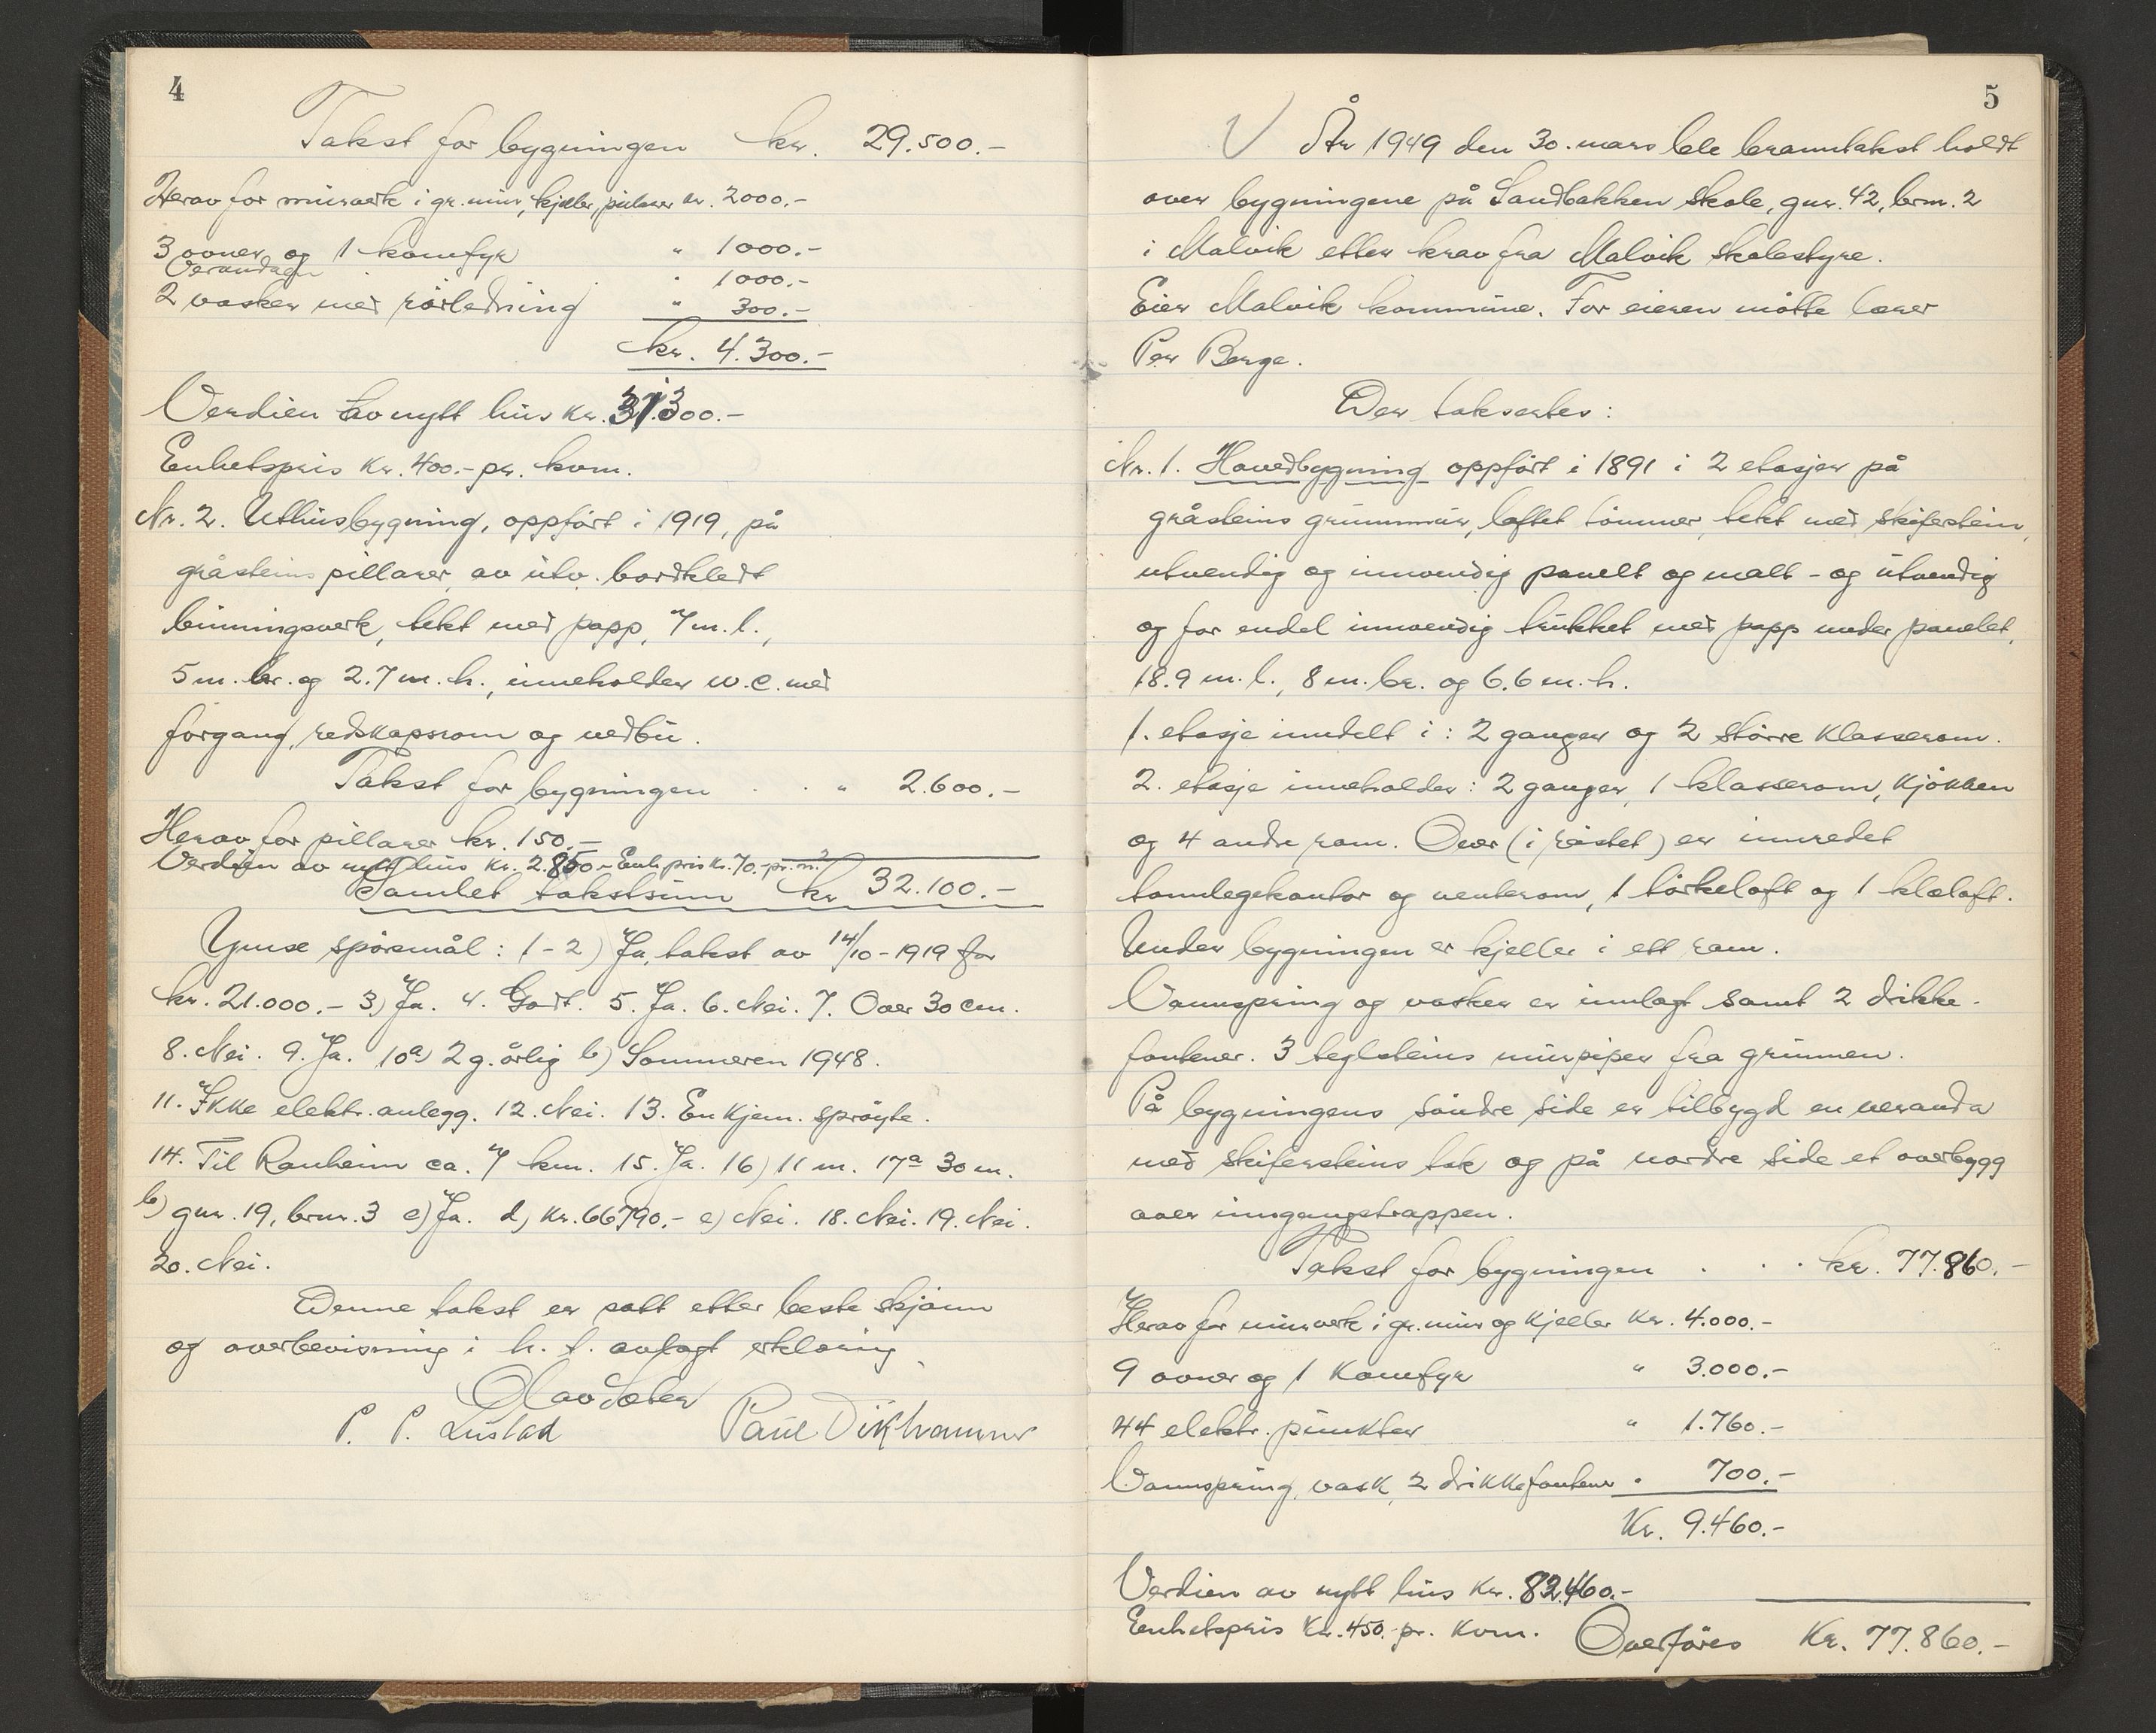 4
Takst for bygningen kr. 29.500.-
Herav for murverk i gr. mur, kjeller, pilarer kr. 2000.-
3 ovner og 1 komfyr " 1000.-
Verandaen " 1000.-
2 vasker med rörledning " 300.-
kr. 4.300.-
Verdien av nytt hus kr. 300.-
Enhetspris Kr. 400.- pr. kvm.
Nr. 2. Uthusbygning, oppfört i 1919, på
gråsteins pillarer, av utv. bordkledt
binningsverk, tekt med papp, 7 m. l.,
5 m. br. og 2.7 m. h., inneholder w.c. med
forgang, redskapsrom og vedbu.
Takst for bygningen . . " 2.600.-
Herav for pillarer kr. 150.-
Verdien av nytt hus kr. 2.850.- Enh.pris kr. 70.- pr. m²
Samlet takstsum kr 32.100.-
Ymse spörsmål: 1-2) Ja, takst av 14/10-1919 for
kr. 21.000.- 3) Ja. 4. Godt. 5. Ja. 6. Nei. 7. Over 30 cm.
8. Nei. 9. Ja. 10a) 2 g. årlig b) Sommeren 1948.
11. Ikke elektr. anlegg. 12. Nei. 13. En kjem. spröyte.
14. Til Ranheim ca. 7 km. 15. Ja. 16) 11 m. 17a 30 m.
b) gnr. 19, brnr. 3 c) Ja. d) Kr. 66790.- e) Nei. 18. Nei. 19. Nei.
20. Nei.
Denne takst er satt etter beste skjönn
og overbevisning i h. t. avlagt erklæring.
Olav Sæter
P. P. Lustad Paul Dikhammer
5
År 1949 den 30. mars ble branntakst holdt
over bygningene på Sandbakken skole, gnr. 42, brnr. 2
i Malvik etter krav fra Malvik skolestyre.
Eier Malvik kommune. For eieren mötte lærer
Per Berge.
Der taksertes:
Nr. 1. Hovedbygning oppfört i 1891 i 2 etasjer på
gråsteins grunnmur, laftet tömmer, tekt med skiferstein,
utvendig og innvendig panelt og malt - og utvendig
og for endel innvendig trukket med papp under panelet,
18.9 m. l., 8 m. br. og 6.6 m. h.
1. etasje inndelt i: 2 ganger og 2 större klasserom.
2. etasje inneholder: 2 ganger, 1 klasserom, kjökken
og 4 andre rom. Over (i röstet) er innredet
tannlegekontor og venterom, 1 törkeloft og 1 klæloft.
Under bygningen er kjeller i ett rom.
Vannspring og vasker er innlagt samt 2 drikke-
fontener. 3 teglsteins murpiper fra grunnen.
På bygningens söndre side er tilbygd en veranda
med skifersteins tak og på nordre side et overbygg
over inngangstrappen.
Takst for bygningen . . . kr. 77.860.-
Herav for murverk i gr. mur og kjeller Kr. 4.000.-
9 ovner og 1 Komfyr " 3.000.-
44 elektr. punkter " 1.760.-
Vannspring, vask, 2 drikkefontener " 700.-
Kr. 9.460.-
Verdien av nytt hus Kr. 82.460.-
Enhetspris Kr. 450.- pr. Kvm.
Overföres Kr. 77.860.-